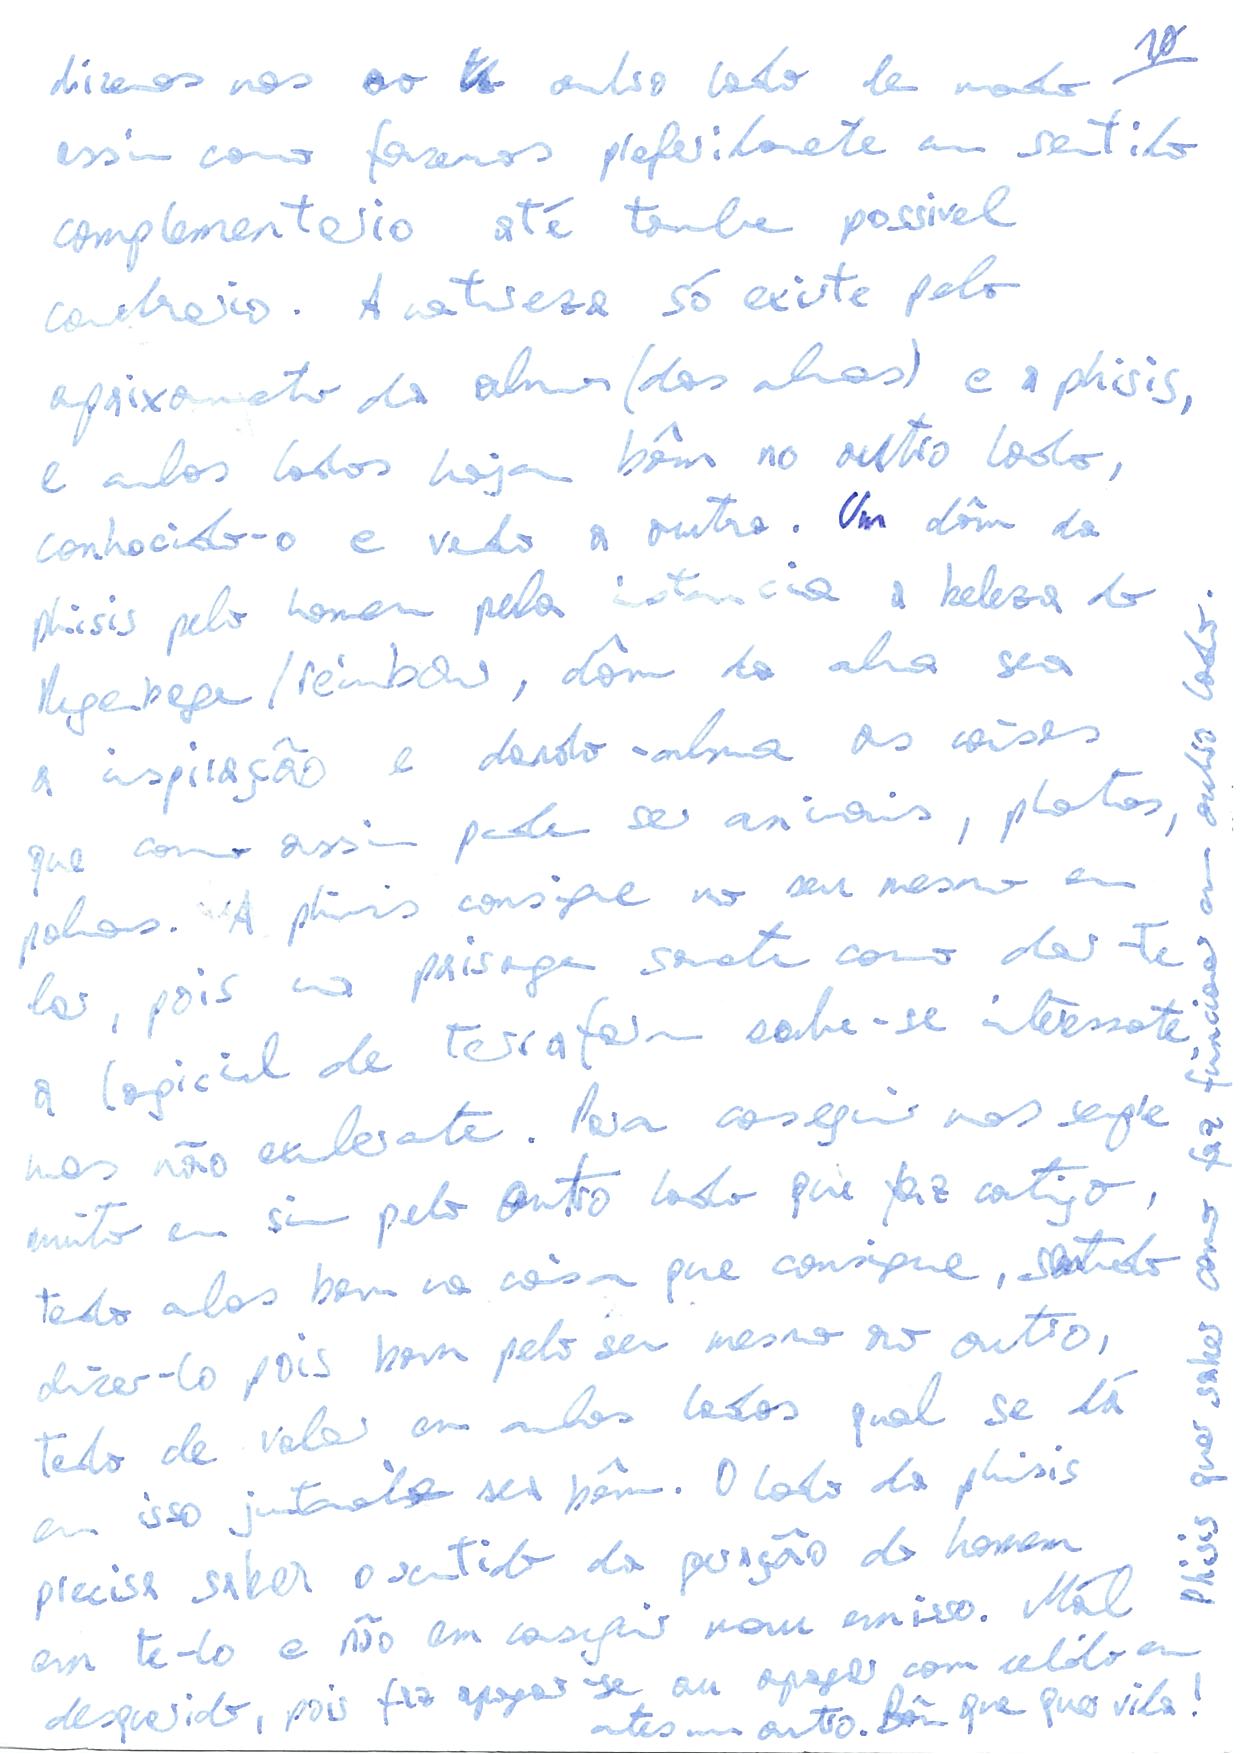 10
dizemos nos ao outro lado de modo
assim como fazemos preferidamete em sentido
complementario até tambe possivel
contrario. A natureza só existe pelo
apaixamето da alma (das almas) e a phisis,
e ambos lados hajam bêm no outro lado,
conhocido-o e vedo a outra. Um dôm da
phisis pelo homem pela instancia a beleza do
Regenbogen/reinbow, dôm da alma sea
a inspiração e dando-alma as coisas
que como assim pode ser animais, platas,
palmas. A phisis consigne no seu mesmo em
lar, pois na paisagem somete como dar-te
a logicial de terraform sabe-se interessate
mas não exuberate. Para coseguir nos sempre
muito em sim pelo outro lado que faz cotigo,
tedo alos bom na coisa que consigne,
dizer-lo pois bom pelo seu mesmo no outro,
tedo de valer em ambos lados qual se dá
em isso sea bêm. O lado da phisis
precisa saber o sentido da do homem
em te-lo e não em coseguir nem em isso. Mál
desquerido, pois faz apagar-se ou apagar com em
ates um outro. Bêm que quer vida!
Phisis quer saber como faz funcionar em outro lado.